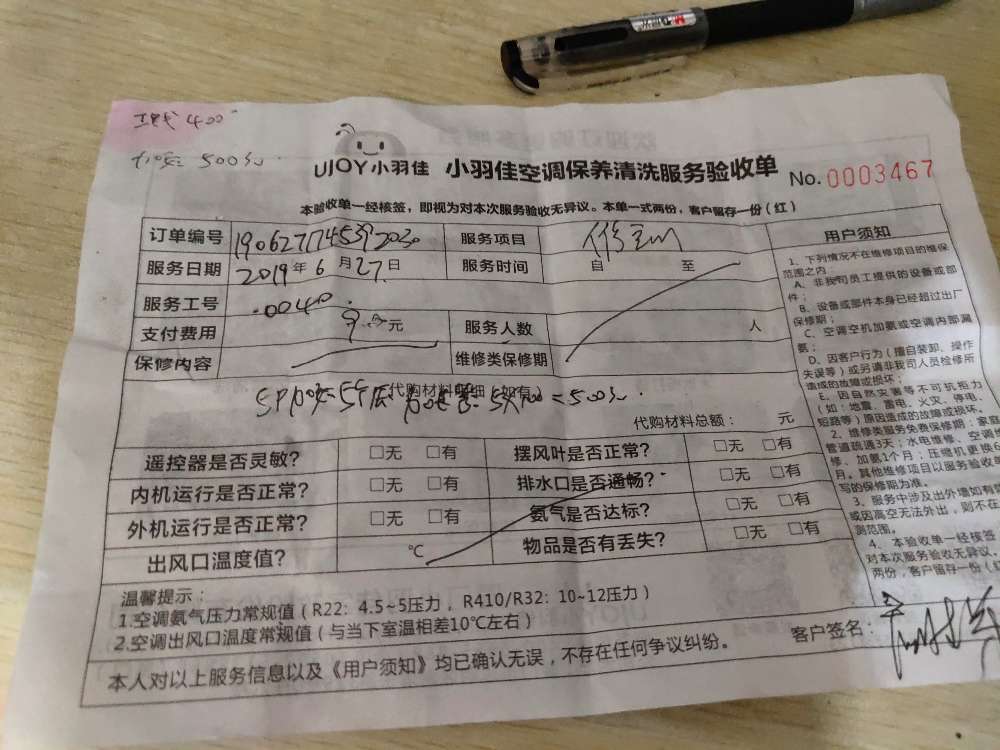 400
500元
UJOY小羽佳 小羽佳空调保养清洗服务验收单 No.0003467
本验收单一经核签，即视为对本次服务验收无异议。本单一式两份，客户留存一份（红）
订单编号 服务项目
服务日期 2019年6月27日 服务时间 自 至
服务工号 0040
支付费用 元 服务人数 人
保修内容 维修类保修期
代购材料明细（如有）
=500元
代购材料总额： 元
遥控器是否灵敏？ □无 □有 摆风叶是否正常？ □无 □有
内机运行是否正常？ □无 □有 排水口是否通畅？ □无 □有
外机运行是否正常？ □无 □有 氨气是否达标？ □无 □有
出风口温度值？ ℃ 物品是否有丢失？ □无 □有
温馨提示：
1.空调氨气压力常规值（R22：4.5~5压力，R410/R32：10~12压力）
2.空调出风口温度常规值（与当下室温相差10℃左右）
客户签名：
本人对以上服务信息以及《用户须知》均已确认无误，不存在任何争议纠纷。
用户须知
1、下列情况不在维修项目的维保
范围之内：
A、非我司员工提供的设备或部
件；
B、设备或部件本身已经超过出厂
保修期；
C、空调空机加氨或空调内部漏
氨；
D、因客户行为（擅自装卸、操作
失误等）或另请非我司人员检修所
造成的故障或损坏；
E、因自然灾害等不可抗拒力
（如：地震、雷电、火灾、停电、
短路等）原因造成的故障或损坏。
2、维修类服务免费保修期：家庭
管道疏通3天；水电维修、空调
修、加氨1个月；压缩机更换
月。其他维修项目以服务验收单
写的保修期为准。
3、服务中涉及出外墙如有
或因高空无法外出，则不在
测范围。
4、本验收单一经核签
对本次服务验收无异议。
两份，客户留存一份（红